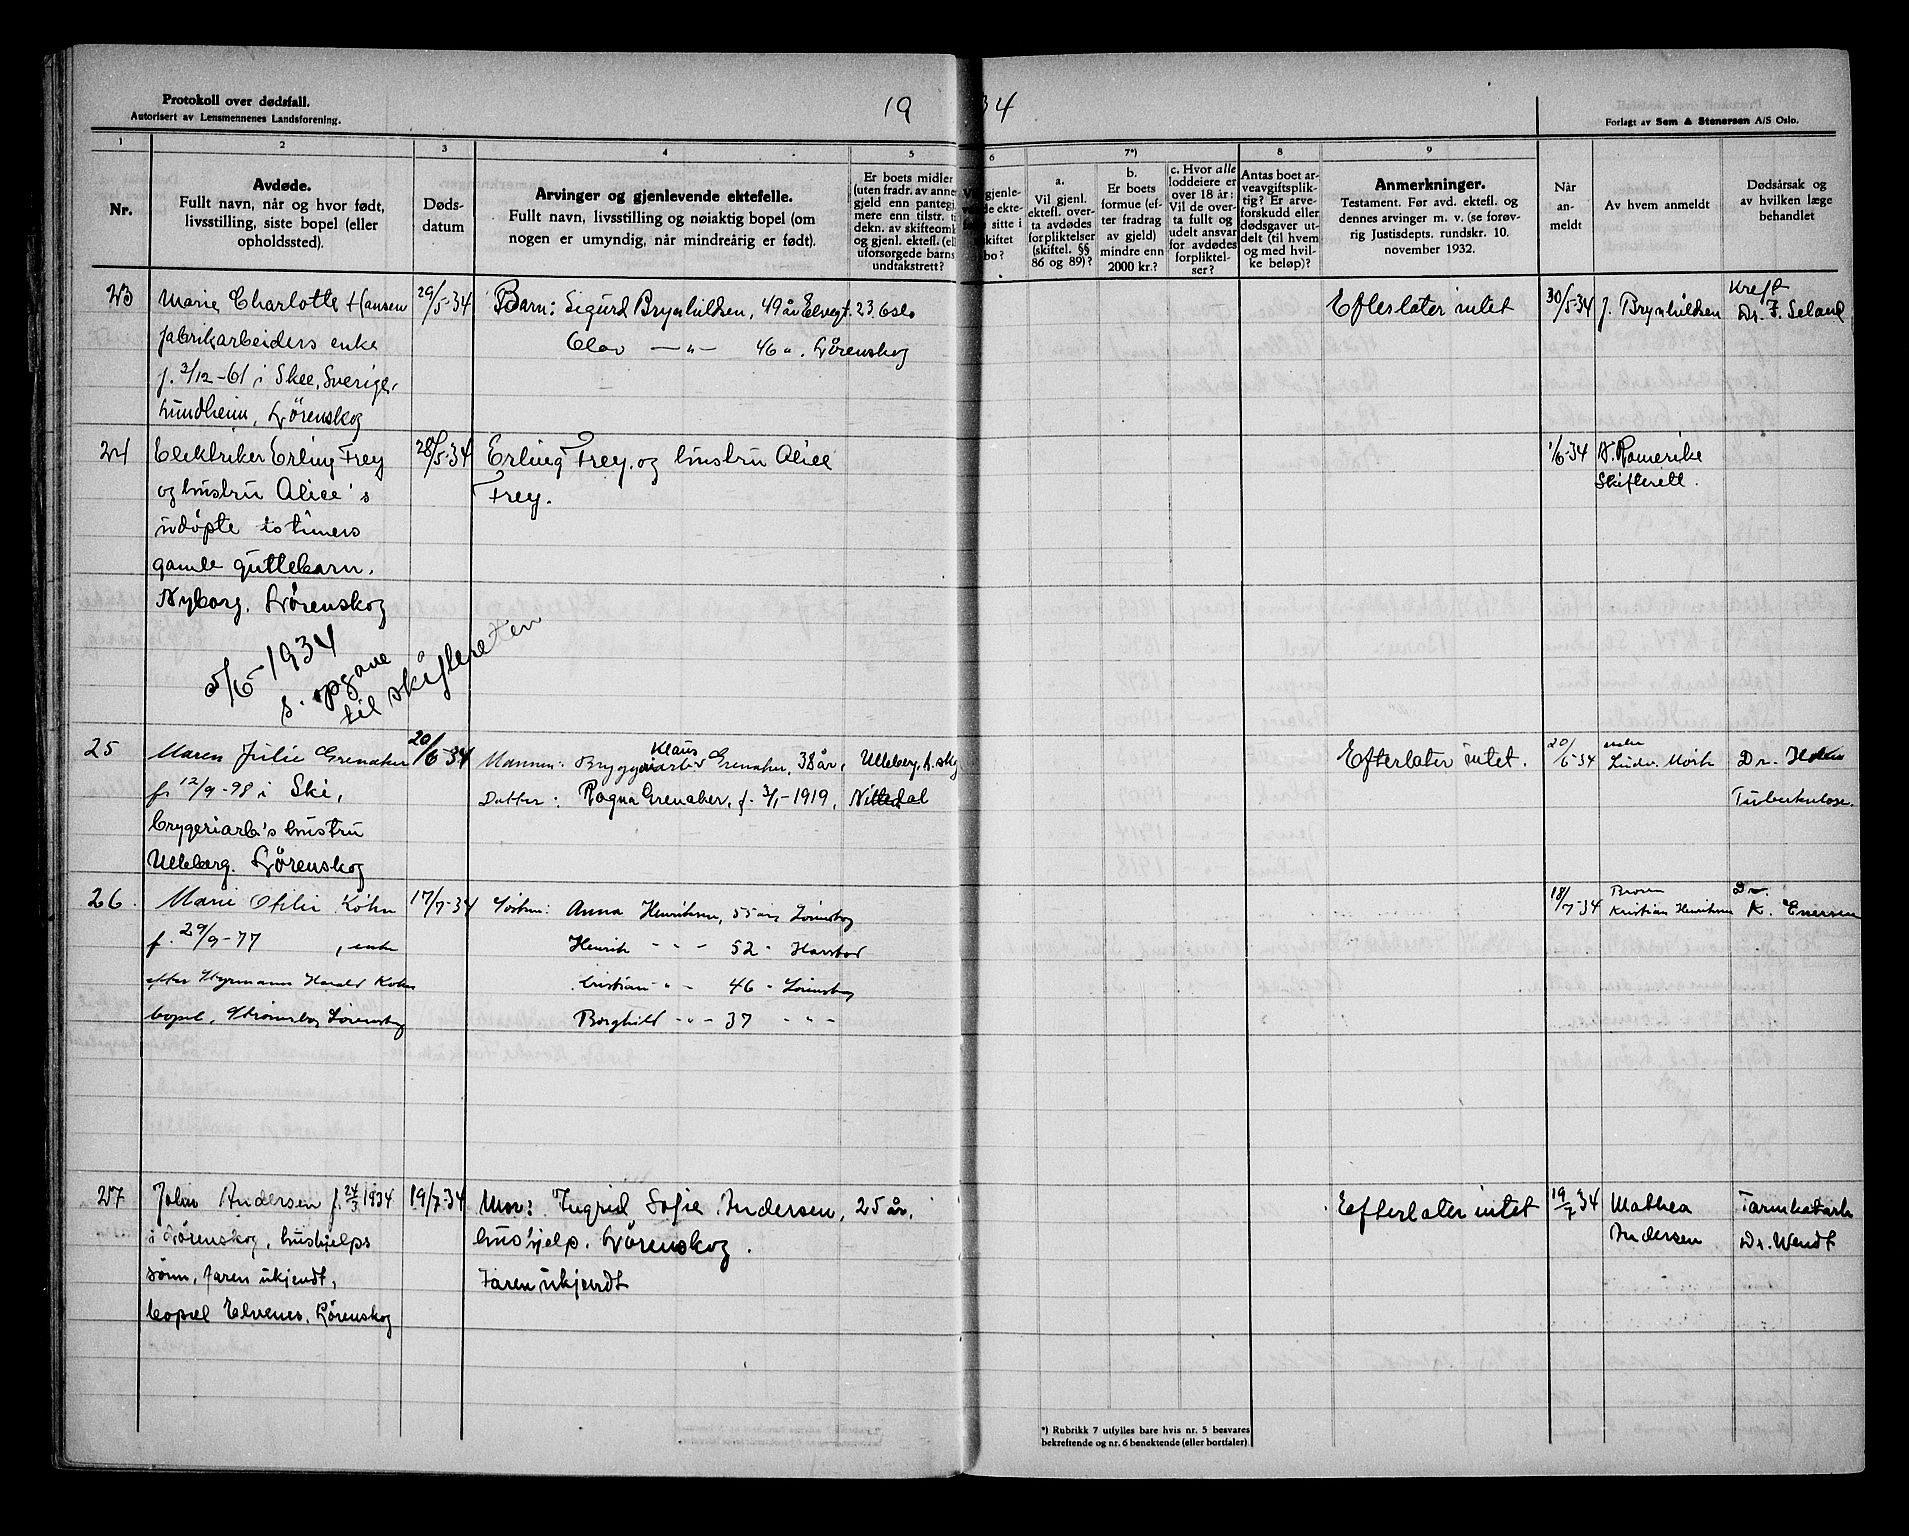 Protokoll over dødsfall.
Autorisert av Lensmennenes Landsforening.
19 34
Forlagt av Sem & Stenersen A/S Oslo.
1 2 3 4 5 6 7*) 8 9
Nr.
Avdøde.
Fullt navn, når og hvor født,
livsstilling, siste bopel (eller
opholdssted).
Døds-
datum
Arvinger og gjenlevende ektefelle.
Fullt navn, livsstilling og nøiaktig bopel (om
nogen er umyndig, når mindreårig er født).
Er boets midler
(uten fradr. av anne
gjeld enn pantegj
mere enn tilstr. t
dekn. av skifteomk
og gjenl. ektefl. (el
uforsørgede barns
undtakstrett?
gjenle-
de ekte-
sitte i
skiftet
bo?
a.
Vil gjenl.
ektefl. over-
ta avdødes
forpliktelser
(skiftel. §§
86 og 89)?
b.
Er boets
formue (ef-
ter fradrag
av gjeld)
mindre enn
2000 kr.?
c. Hvor alle
loddeiere er
over 18 år:
Vil de over-
ta fullt og
udelt ansvar
for avdødes
forpliktel-
ser?
Antas boet ar-
veavgiftsplik-
tig? Er arve-
forskudd eller
dødsgaver ut-
delt (til hvem
og med hvil-
ke beløp)?
Anmerkninger.
Testament. Før avd. ektefl. og
dennes arvinger m. v. (se forøv-
rig Justisdepts. rundskr. 10.
november 1932.
Når
an-
meldt
Av hvem anmeldt
Dødsårsak og
av hvilken læge
behandlet
23 Marie Charlotte Hansen 29/5-34 Barn: Sigurd Brynhildsen, 49 år Elvegt. 23. Oslo Efterlater intet 30/5-34 J. Brynhildsen Kreft
Dr. F. Seland
fabrikarbeiders enke Olav —„— 46 „. Lørenskog
f. 2/12-61 i Skee, Sverige,
Lundheim, Lørenskog
24 Elektriker Erling Frey 28/5-34 Erling Frey og hustru Alice 1/6-34 N. Romerike
og hustru Alice's Frey. Skifterett.
udøpte to timers
gamle guttebarn.
Nyborg. Lørenskog
5/6-1934
s. opgave
til skifteretten
25 Maren Julie Grenaker 20/6-34 Mannen: Bryggeriarb Klaus Grenaker, 38 år, Ulleberg, L.skg Efterlater intet. 20/6-34 Ludv. Mork Dr. Holen
f. 12/9-98 i Ski, Datter: Ragna Grenaker, f. 3/1-1919, Nittedal Tuberkulose.
brygeriarb's hustru
Ulleberg. Lørenskog
26. Marie Otilie Köhn 17/7-34 Søsken: Anna Henriksen, 55 år, Lørenskog 18/7-34 Broren Dr.
Kristian Henriksen K. Enersen
f. 29/9-77 , enke Henrik - „ - 52 „ Harstad
efter Styrmann Harald Köhn Kristian - „ - 46 „ Lørenskog
bopel, Strømsbo Lørenskog Borghild - „ - 37 - „ -
27 John Andersen f. 24/3 1934 19/7-34 Mor: Ingrid Sofie Andersen, 25 år, Efterlater intet 19/7 34 Mathea Tarmkatarh
i Lørenskog, hushjelps hushjelp. Lørenskog. Andersen Dr. Wendt
sønn, faren ukjendt, Faren ukjendt
bopel Elvenes, Lørenskog
*) Rubrikk 7 utfylles bare hvis nr. 5 besvares
bekreftende og nr. 6 benektende (eller bortfaller)